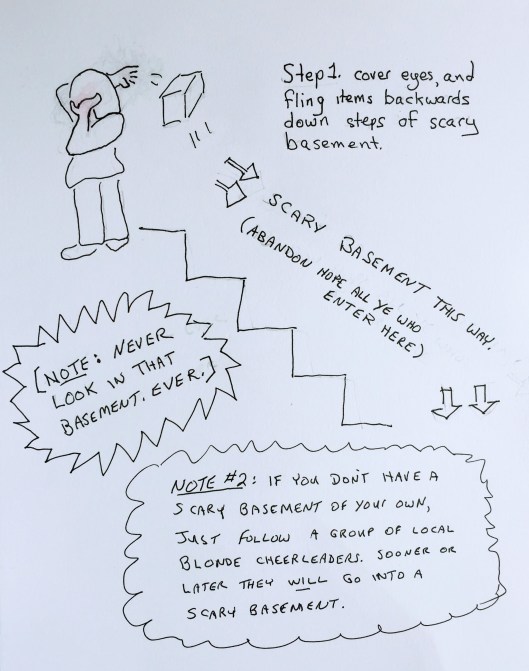 Step 1. cover eyes, and
fling items backwards
down steps of scary
basement.
SCARY BASEMENT THIS WAY.
(ABANDON HOPE ALL YE WHO
ENTER HERE)
[NOTE: NEVER
LOOK IN THAT
BASEMENT. EVER.]
NOTE #2: IF YOU DON'T HAVE A
SCARY BASEMENT OF YOUR OWN,
JUST FOLLOW A GROUP OF LOCAL
BLONDE CHEERLEADERS. SOONER OR
LATER THEY WILL GO INTO A
SCARY BASEMENT.